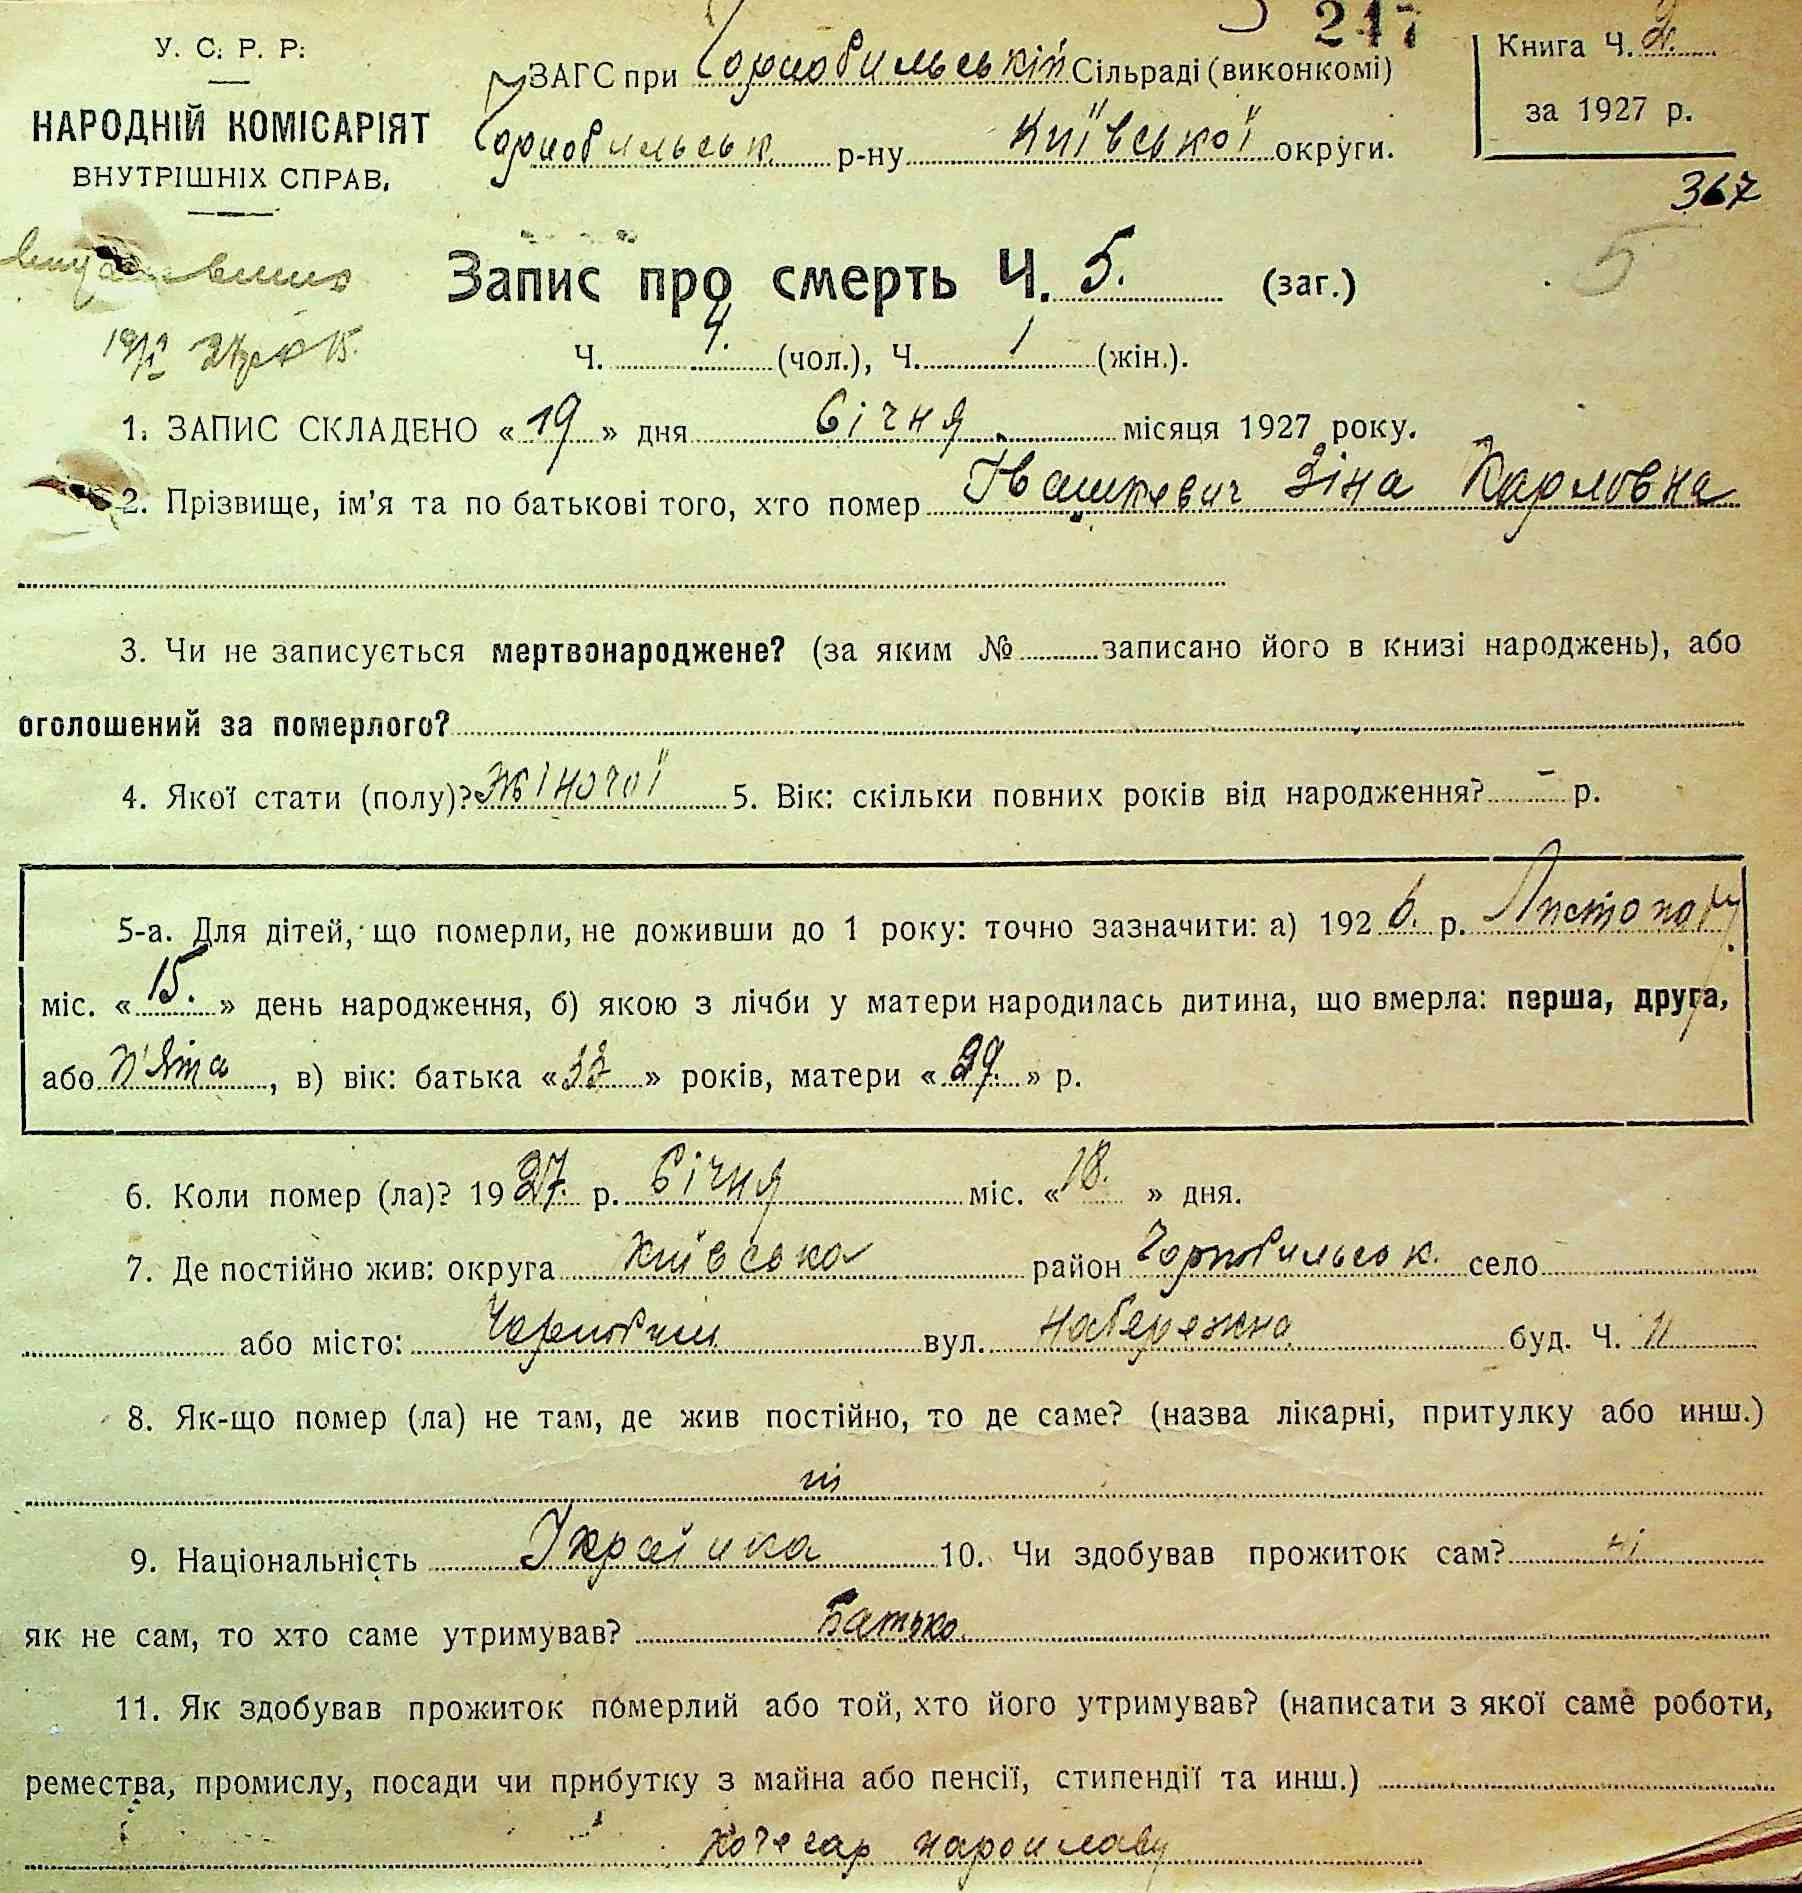 247
У. С. Р. Р.
НАРОДНІЙ КОМІСАРІЯТ
ВНУТРІШНІХ СПРАВ.
ЗАГС при Чорнобильській Сільраді (виконкомі)
Чорнобильськ. р-ну Київської округи.
Книга Ч. 2.
за 1927 р.
367
5
Запис про смерть Ч. 5. (заг.)
Ч. 4. (чол.), Ч. 1 (жін.).
1. ЗАПИС СКЛАДЕНО «19» дня Січня місяця 1927 року.
2. Прізвище, ім'я та по батькові того, хто помер Івашкевич Зіна Карловна
3. Чи не записується мертвонароджене? (за яким № записано його в книзі народжень), або
оголошений за померлого?
4. Якої стати (полу)? Жіночої 5. Вік: скільки повних років від народження? – р.
5-а. Для дітей, що померли, не доживши до 1 року: точно зазначити: а) 1926. р. Листопаду
міс. «15.» день народження, б) якою з лічби у матери народилась дитина, що вмерла: перша, друга,
або п'ята, в) вік: батька «33» років, матери «29.» р.
6. Коли помер (ла)? 1927. р. Січня міс. «18.» дня.
7. Де постійно жив: округа Київська район Чорнобильськ. село
або місто: Чорнобиль вул. Набережна буд. Ч. 11
8. Як-що помер (ла) не там, де жив постійно, то де саме? (назва лікарні, притулку або инш.)
ні
9. Національність Українка 10. Чи здобував прожиток сам? ні
як не сам, то хто саме утримував? Батько
11. Як здобував прожиток померлий або той, хто його утримував? (написати з якої саме роботи,
ремества, промислу, посади чи прибутку з майна або пенсії, стипендії та инш.)
Кочегар пароплаву